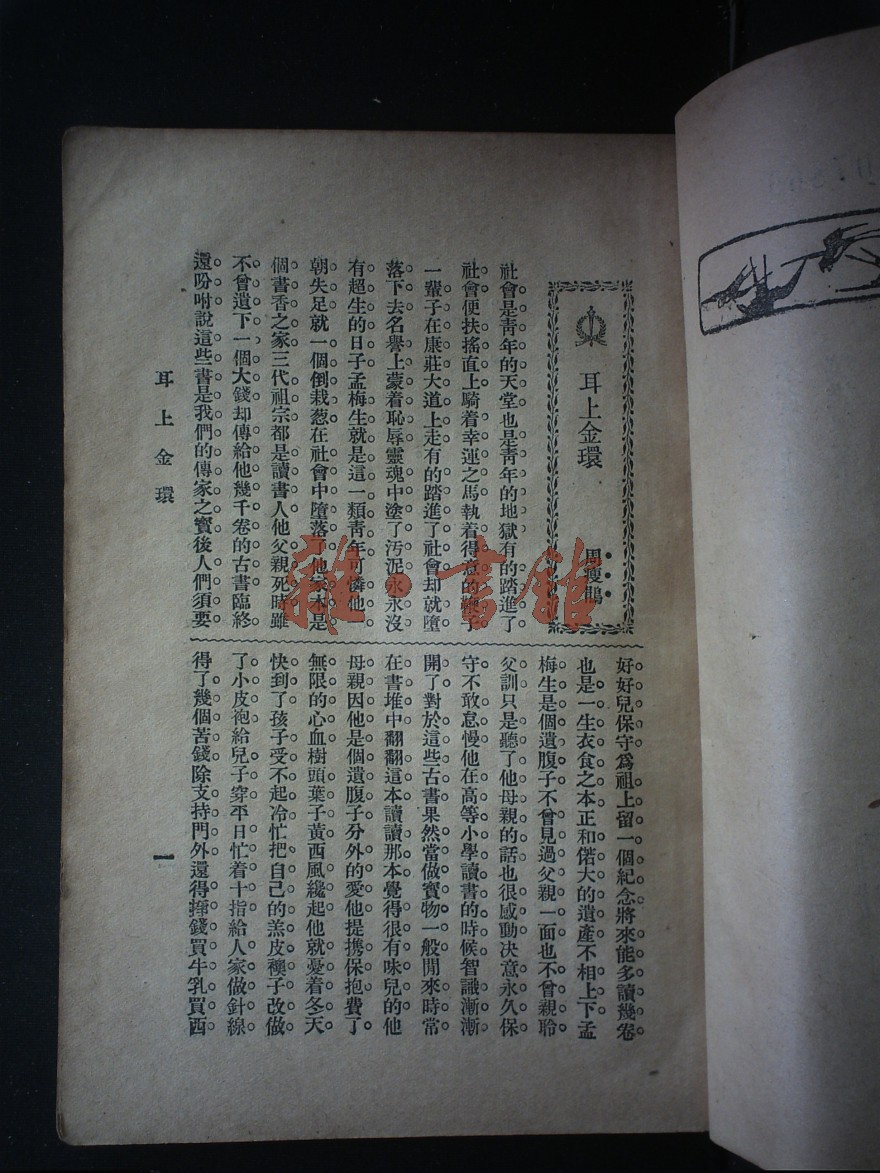 耳上金環
周瘦鵑
社會是靑年的天堂也是靑年的地獄有的踏進了
社會便扶搖直上騎着幸運之馬執着得意的鞭子
一輩子在康莊大道上走有的踏進了社會却就墮
落下去名譽上蒙着恥辱靈魂中塗了汚泥永永沒
有超生的日子孟梅生就是這一類靑年可憐他一
朝失足就一個倒栽葱在社會中墮落了他家本是
個書香之家三代祖宗都是讀書人他父親死時雖
不曾遺下一個大錢却傳給他幾千卷的古書臨終
還吩咐說這些書是我們的傳家之寳後人們須要
好好兒保守爲祖上留一個紀念將來能多讀幾卷
也是一生衣食之本正和偌大的遺產不相上下孟
梅生是個遺腹子不曾見過父親一面也不曾親聆
父訓只是聽了他母親的話也很感動決意永久保
守不敢怠慢他在高等小學讀書的時候智識漸漸
開了對於這些古書果然當做寳物一般閒來時常
在書堆中翻翻這本讀讀那本覺得很有味兒的他
母親因他是個遺腹子分外的愛他提携保抱費了
無限的心血樹頭葉子黃西風纔起他就憂着冬天
快到了孩子受不起冷忙把自己的羔皮襖子改做
了小皮袍給兒子穿平日忙着十指給人家做針線
得了幾個苦錢除支持門外還得擰錢買牛乳買西
耳上金環
一
雜·書館